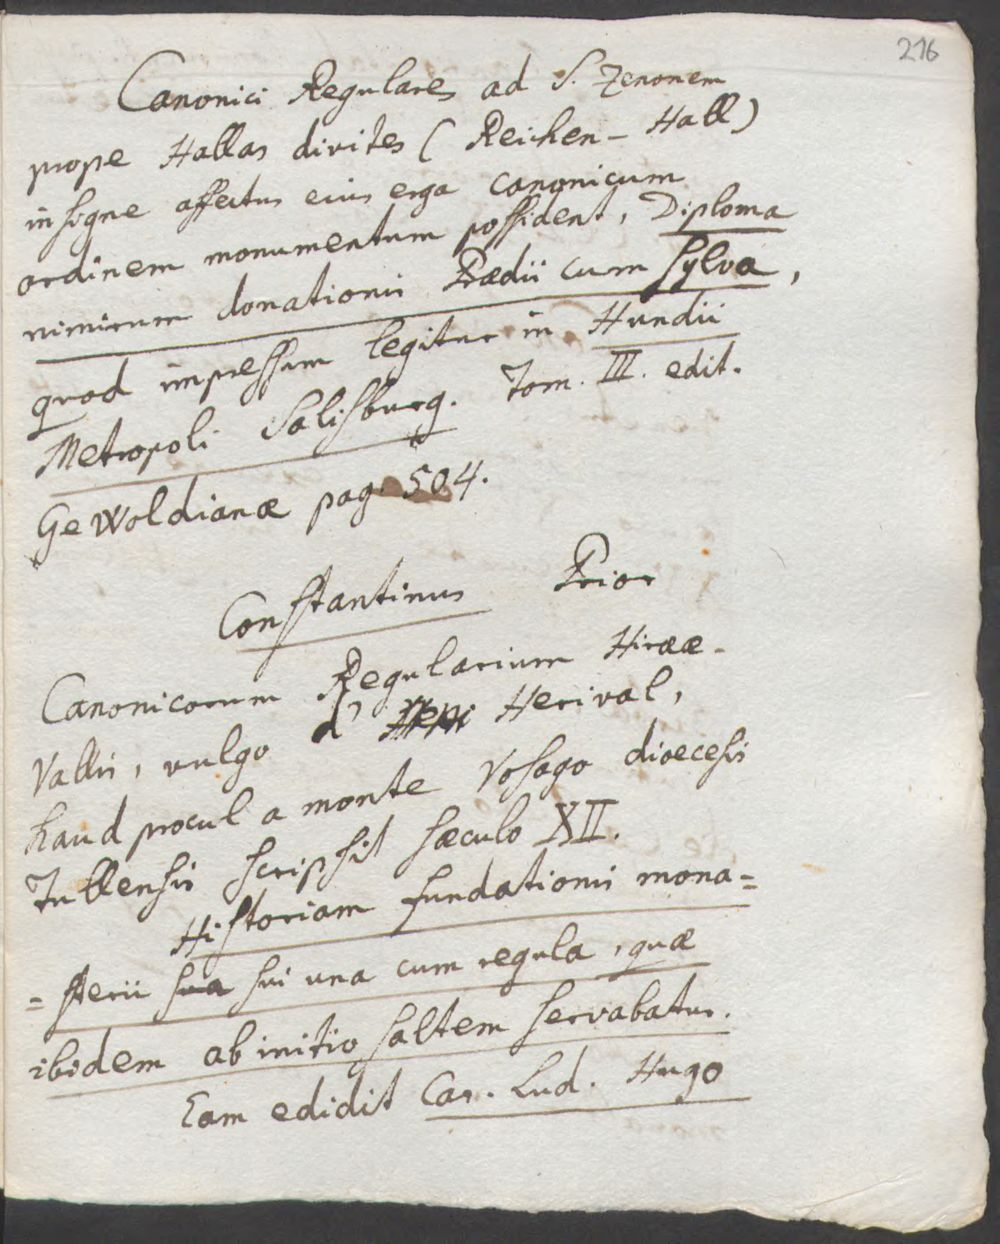 216
Canonici Regulares ad S. Zenonem
prope Hallas divites (Reichen-Hall)
insigne affectus eius erga canonicum
ordinem monumentum possident, Diploma
nimirum donationis Prædii cum sylva,
quod impressum legitur in Hundii
Metropoli Salisburg. Tom. III. edit.
Gewoldianæ pag. 504.
Constantinus Prior
Canonicorum Regularium Hiræ-
Vallis, vulgo d' Herival,
haud procul a monte Vosago dioecesis
Tullensis scripsit sæculo XII.
Historiam fundationis mona=
=sterii sua sui una cum regula, quæ
ibidem ab initio saltem servabatur.
Eam edidit Car. Lud. Hugo